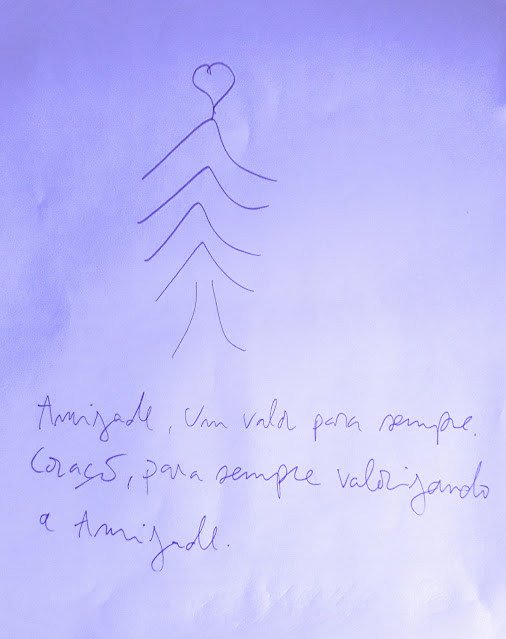 Amizade, um valor para sempre.
Coração, para sempre valorizando
a Amizade.